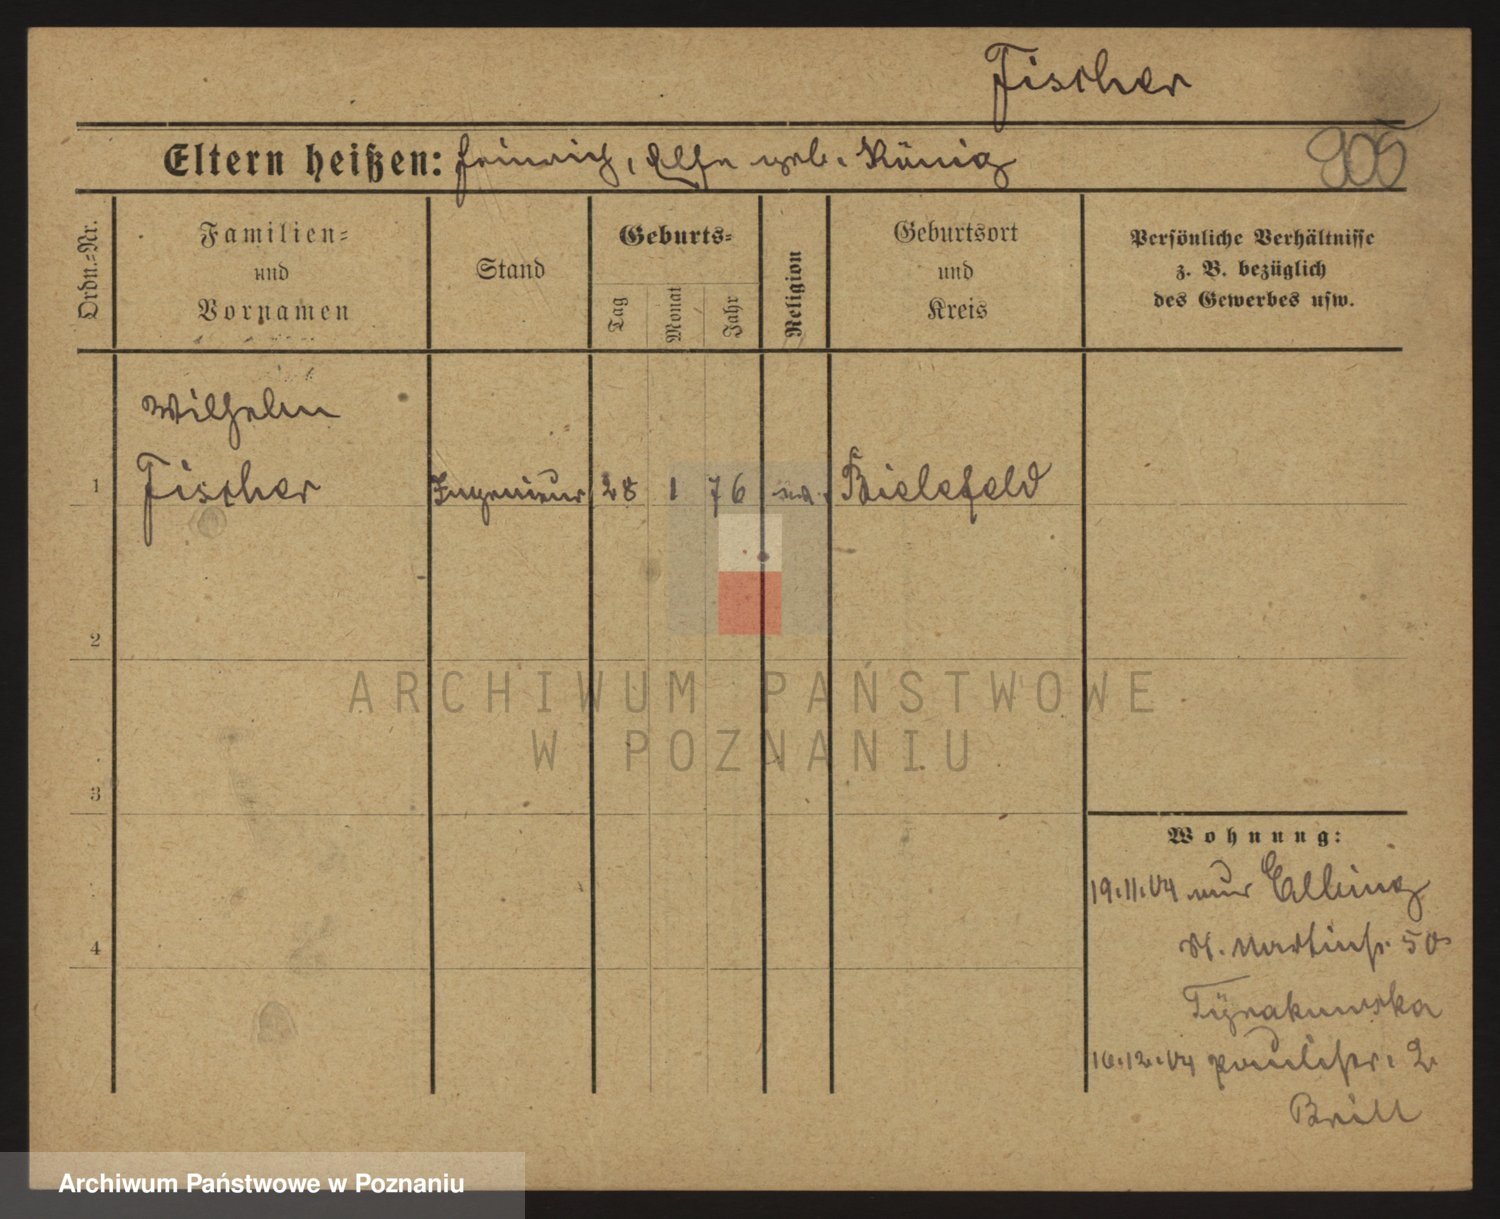 Fischer
905
Eltern heißen: Heinrich, geb. König
Ordn.-Nr.
Familien-
und
Vornamen
Stand
Geburts-
Tag
Monat
Jahr
Religion
Geburtsort
und
Kreis
Persönliche Verhältnisse
z. B. bezüglich
des Gewerbes usw.
Wilhelm
1 Fischer Ingenieur 28 1 76 ev. Bielefeld
2
3
4
Wohnung:
19.11.04 aus Elbing
St. Martinstr. 50
16.12.04 Paulistr. 2
Brill
ARCHIWUM PAŃSTWOWE
W POZNANIU
Archiwum Państwowe w Poznaniu